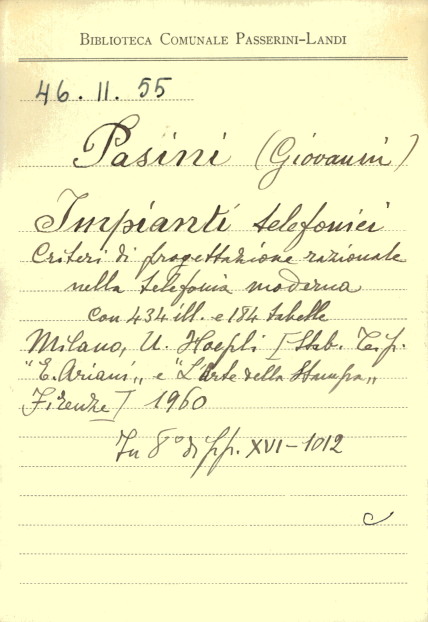 BIBLIOTECA COMUNALE PASSERINI-LANDI
46. II. 55
Pasini (Giovanni)
Impianti telefonici
Criteri di progettazione razionale
nella telefonia moderna
con 434 ill. e 184 tabelle
Milano, U. Hoepli [Stab. Tip.
"E. Ariani„ e "L'Arte della Stampa„
Firenze] 1960
In 8° di pp. XVI-1012
c